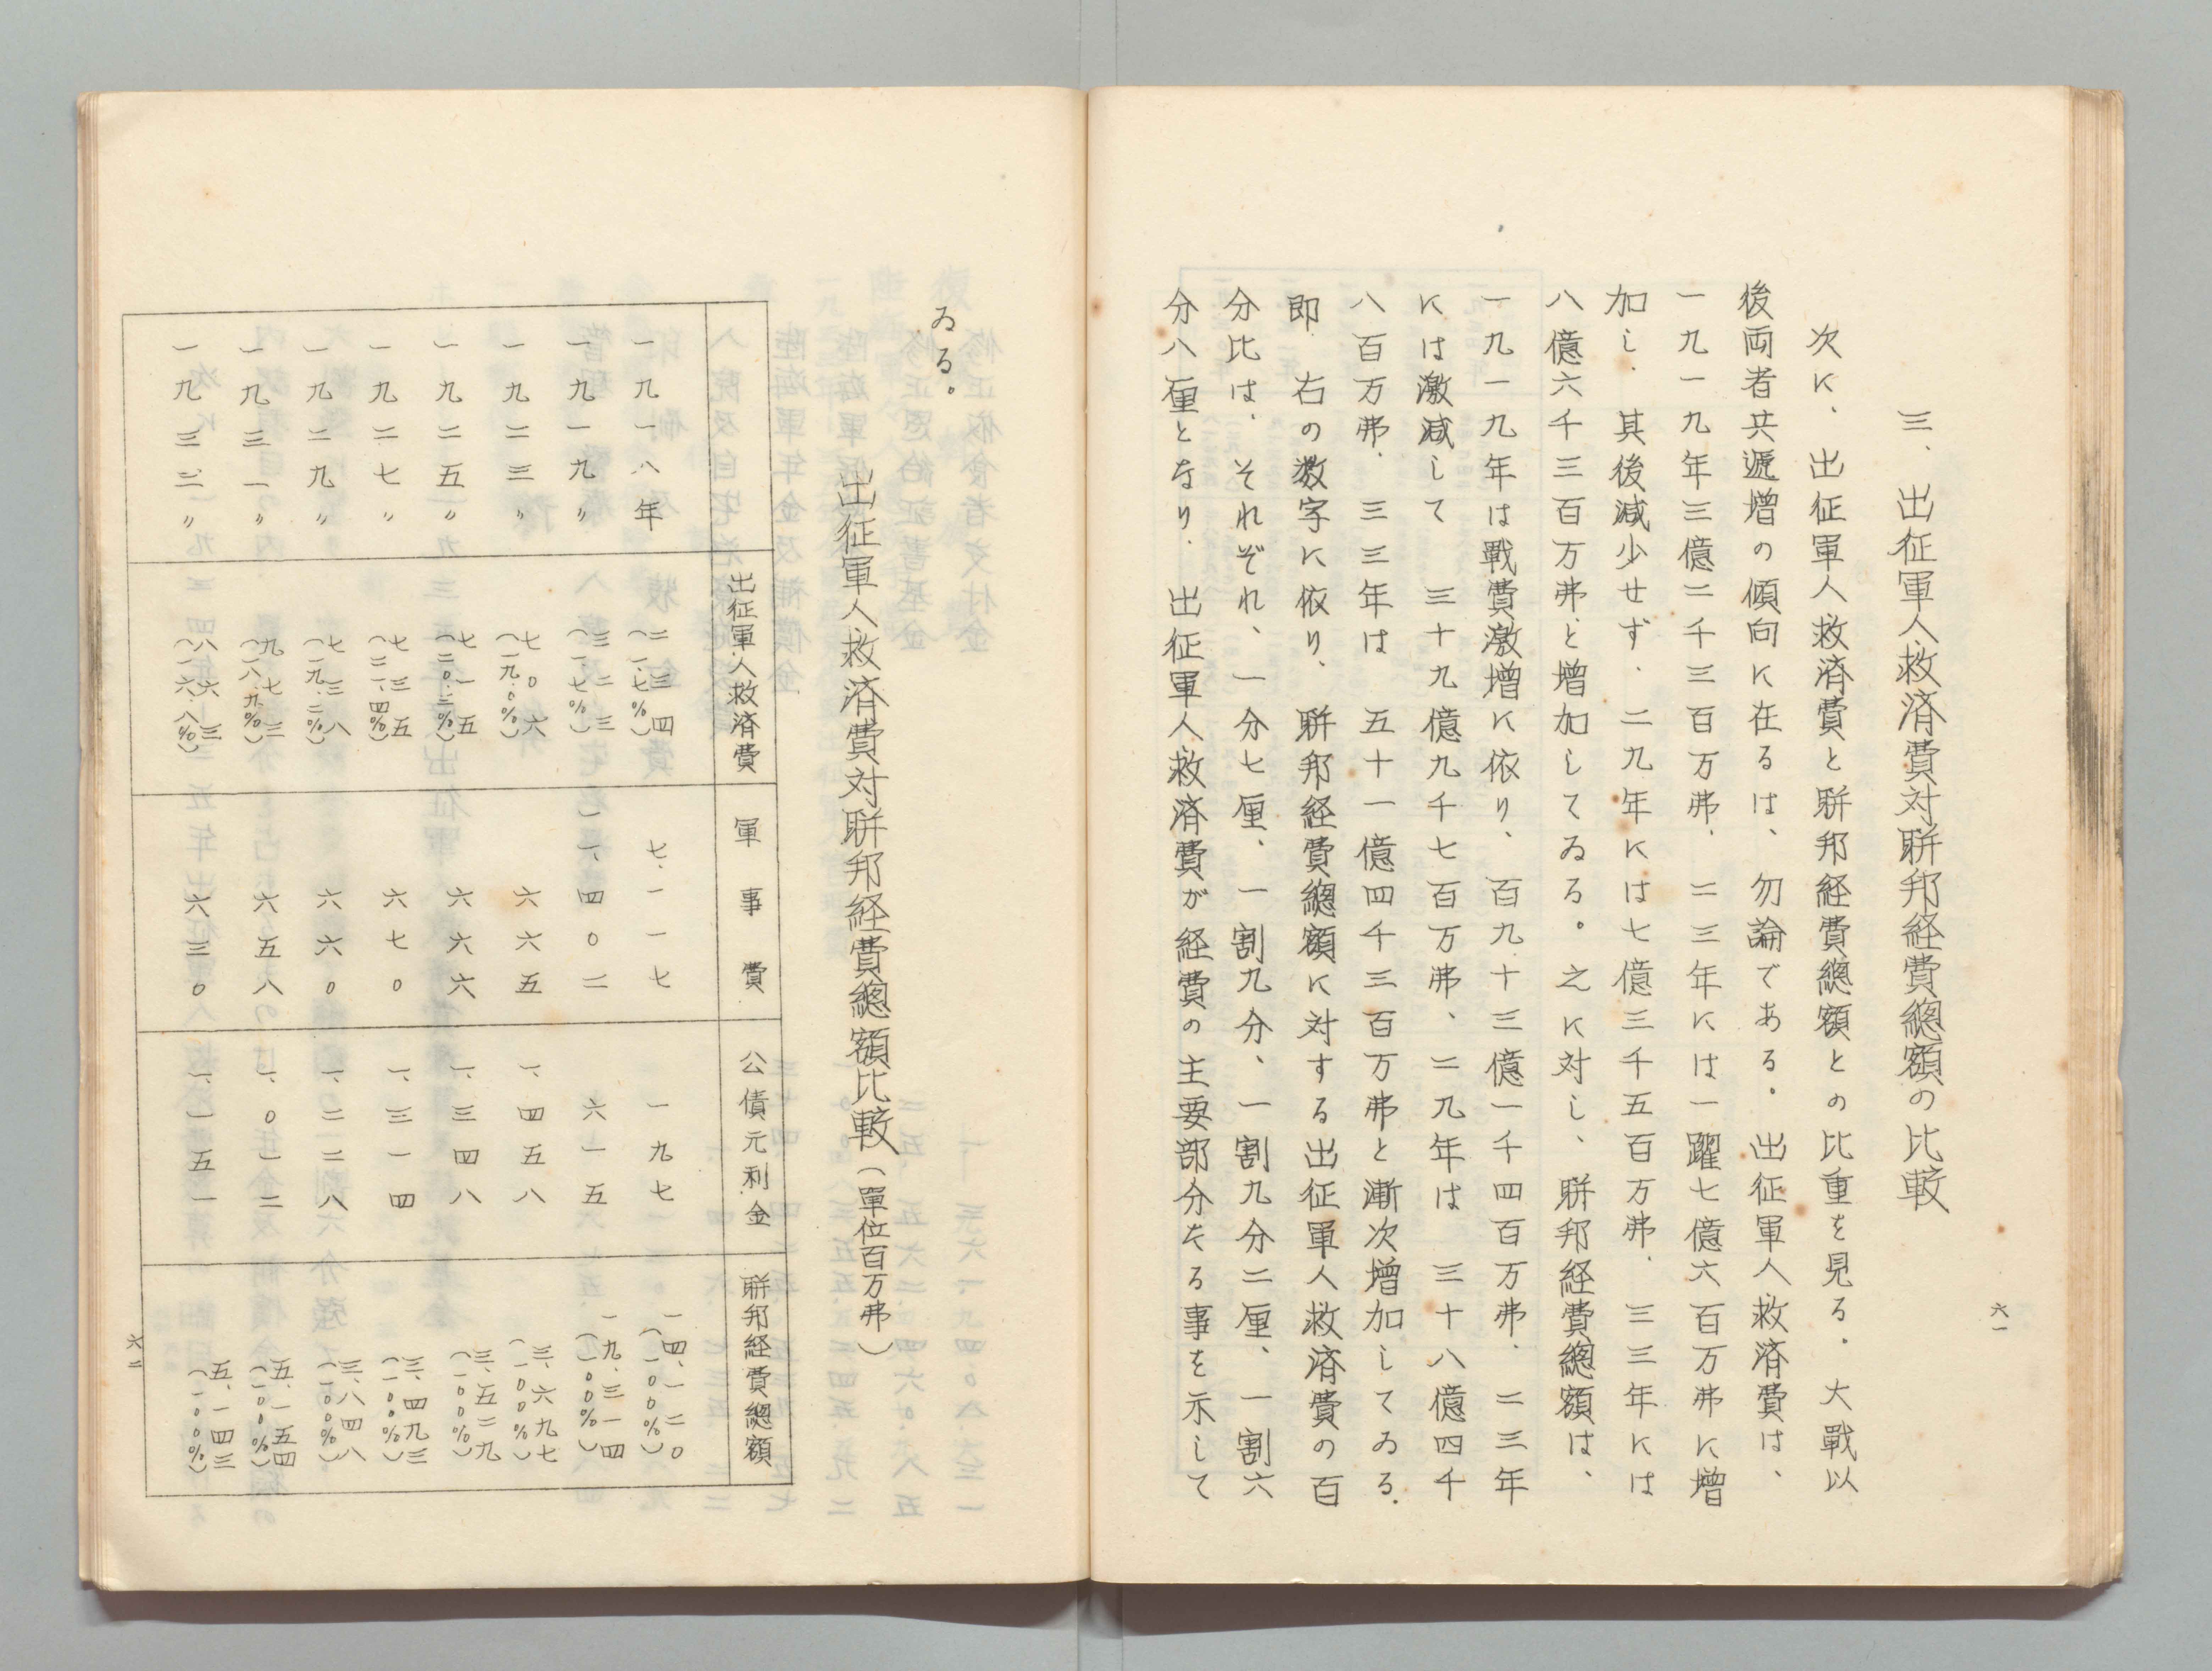 六一
三、出征軍人救済費対聨邦経費總額の比較
次に、出征軍人救済費と聨邦経費總額との比重を見る。大戰以
後両者共遞増の傾向に在るは、勿論である。出征軍人救済費は、
一九一九年三億二千三百万弗、二三年には一躍七億六百万弗に増
加し、其後減少せず、二九年には七億三千五百万弗、三三年には
八億六千三百万弗と増加してゐる。之に対し、聨邦経費總額は、
一九一九年は戰費激増に依り、百九十三億一千四百万弗、二三年
には激減して三十九億九千七百万弗、二九年は三十八億四千
八百万弗、三三年は五十一億四千三百万弗と漸次増加してゐる。
即右の数字に依り、聨邦経費總額に対する出征軍人救済費の百
分比は、それぞれ、一分七厘、一割九分、一割九分二厘、一割六
分八厘となり、出征軍人救済費が経費の主要部分なる事を示して
ゐる。
出征軍人救済費対聨邦経費總額比較(單位百万弗)
出征軍人救済費 軍事費 公債元利金 聨邦経費總額
一九一八年 二三四(一、七%) 七、一一七 一九七 一四、一二〇(一〇〇%)
一九一九〃 三二三(一、七%) 一、四〇二 六一五 一九、三一四(一〇〇%)
一九二三〃 七〇六(一九、〇%) 六六五 一、四五八 三、六九七(一〇〇%)
一九二五〃 七一五(二〇、三%) 六六六 一、三四八 三、五二九(一〇〇%)
一九二七〃 七三五(二一、四%) 六七〇 一、三一四 三、四九三(一〇〇%)
一九二九〃 七三八(一九、二%) 六六〇 一、二二八 三、八四八(一〇〇%)
一九三一〃 九七三(一八、九%) 六五八 一、〇一二 五、一五四(一〇〇%)
一九三三〃 八六三(一六、八%) 六三〇 一、一五一 五、一四三(一〇〇%)
六二